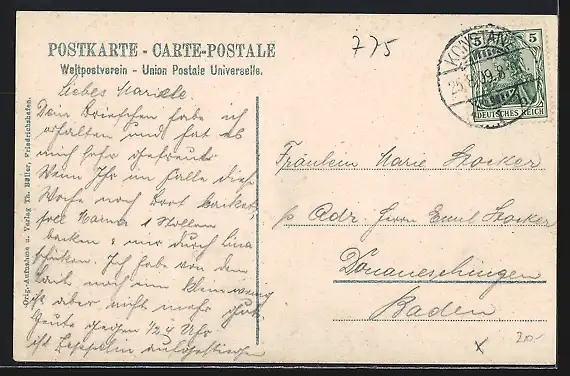 775
POSTKARTE - CARTE-POSTALE
Weltpostverein - Union Postale Universelle.
KONSTANZ
5 5
DEUTSCHES REICH
Liebes Mariele.
Dein Briefchen habe ich
erhalten und hat es
mich sehr gefreut.
Wenn Ihr im Falle diese
Woche noch Brot backet,
soll Mama 1 Stollen
backen & mir durch Lina
schicken. Ich habe von dem
Laib noch ein klein wenig
ist aber nicht mehr gut.
Heute gegen 1/2 4 Uhr
ist Zeppelin aufgestiegen
Fräulein Marie Stocker
p. Adr. Herrn Emil Stocker
Donaueschingen
Baden
20.-
Orig.-Aufnahme u. Verlag Th. Büller, Friedrichshafen.